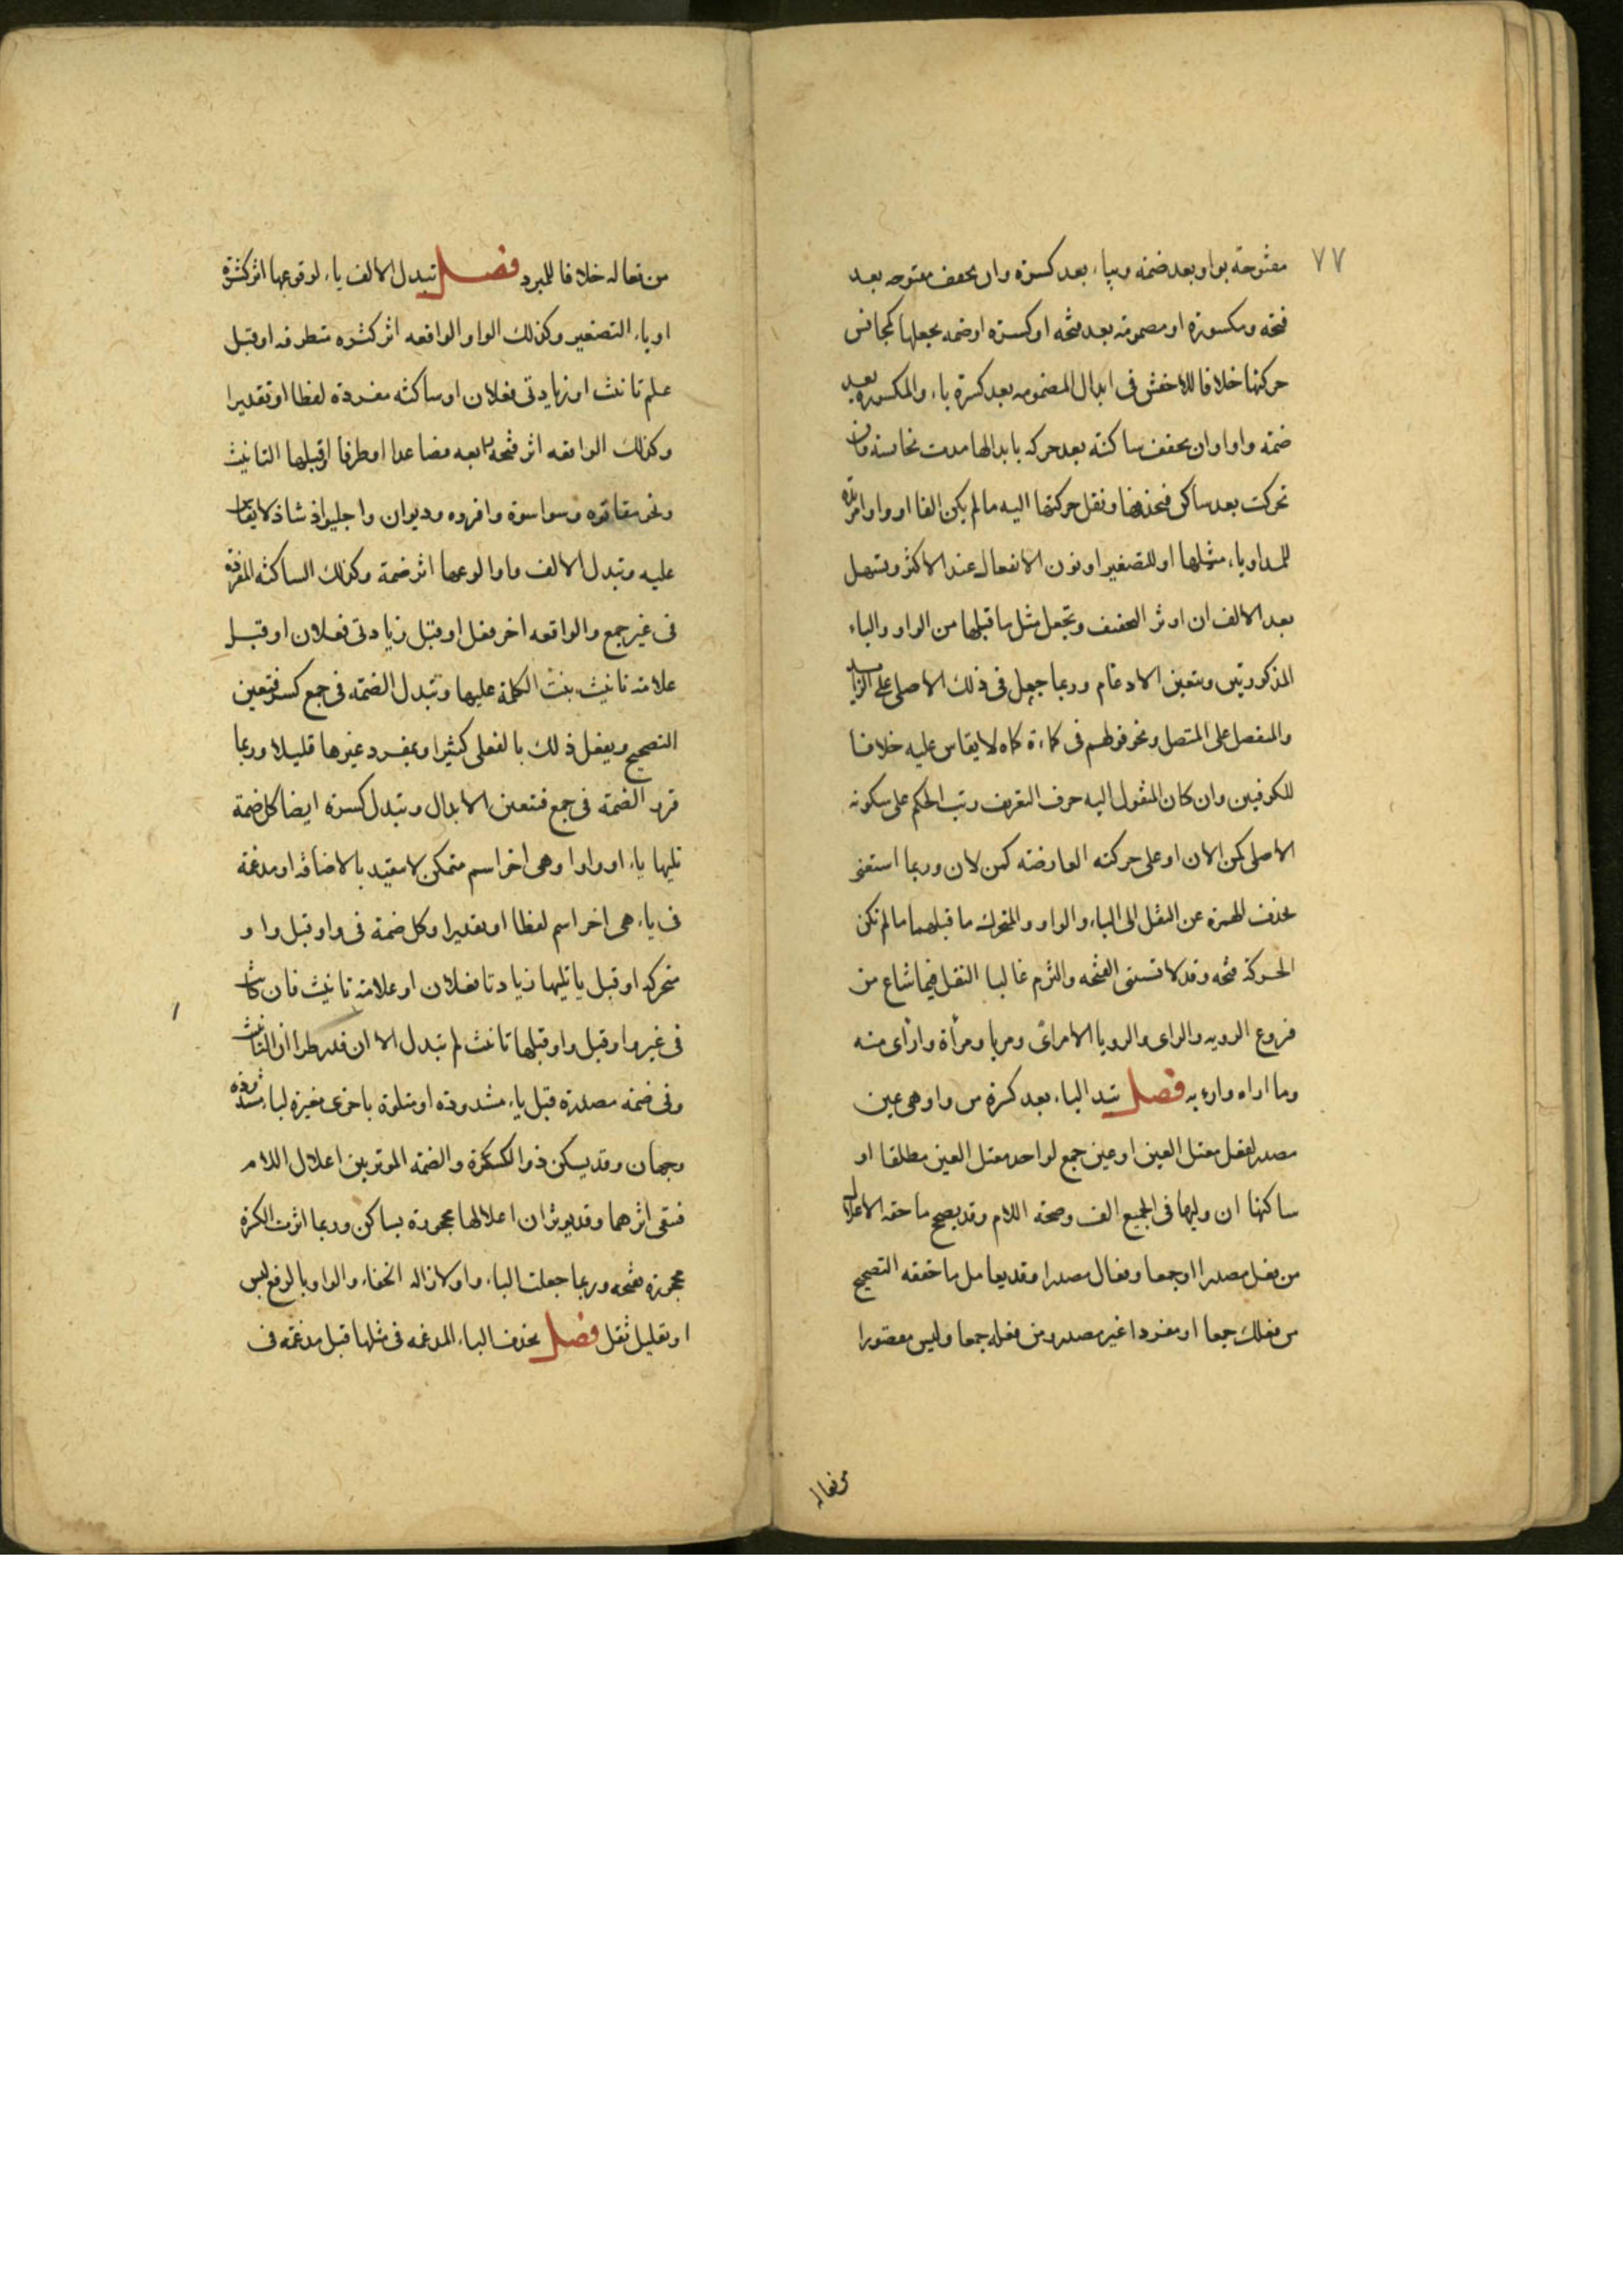 ٧٧
مفتوحة بواو بعد ضمة وبياء بعد كسرة وان تخفف مفتوحه بعد
فتحة ومكسورة او مضمومة بعد فتحه او كسرة او ضمه بجعلها كمجانس
حركتها خلافا للاخفش فى ابدال المضمومه بعد كسرة ياء والمكسوره بعد
ضمة واوا وان تخفف ساكنة بعد حركه بابدالها مدت تجانسه فان
تحركت بعد ساكن فبحذفها ونقل حركتها اليه مالم يكن الفا او واوا مزيدة
للمد او ياء مثلها او للتصغير او نون الانفعال عند الاكثر وتسهل
بعد الالف ان اوثر التخفيف وتجعل مثل ما قبلها من الواو والياء
المذكورتين ويتعين الادغام وربما جعل فى ذلك الاصلى على الزايد
والمنفصل على المتصل ونحو قولهم فى كماءة كماه لا يقاس عليه خلافا
للكوفيين وان كان المنقول اليه حرف التعريف رتب الحكم على سكونه
الاصلى كمن الان او على حركته العارضة كمن لان وربما استغنى
بحذف الهمزة عن النقل الى الياء والواو والمتحرك ما قبلهما مالم تكن
الحركة فتحه وقد لا تستثنى الفتحه والتزم غالبا النقل فيما شاع من
فروع الرويه والراى والرويا الا مرأى ومريا ومرأة وارأى منه
وما اراه وارء به فصل تبدل الياء بعد كسرة من واو هى عين
مصدر لفعل معتل العين او عين جمع لواحد معتل العين مطلقا او
ساكنها ان وليها فى الجميع الف وصحة اللام وقد يصحح ما حقه الاعلال
من فعل مصدرا او جمعا وفعال مصدرا وقد يعامل ما حقه التصحيح
من فعلك جمعا او مفردا غير مصدر ومن فعله جمعا وليس مقصورا
من فعاله
من فعاله خلافا للمبرد فصل تبدل الالف ياء لوقوعها اثر كسرة
او ياء التصغير وكذلك الواو الواقعه اثر كسره متطرفه او قبل
علم تانيث او زيادتى فعلان او ساكنه مفردة لفظا او تقديرا
وكذلك الواقعه اثر فتحه رابعه فصاعدا او طرفا او قبلها التانيث
ونحو مقاتوه وسواسوة واقروه وديوان واجليواذ شاذ لا يقاس
عليه وتبدل الالف واوا لوقوعها اثر ضمة وكذلك الساكنه المفردة
فى غير جمع والواقعه اخر فعل او قبل زيادتى فعلان او قبل
علامة تانيث بنيت الكلمة عليها وتبدل الضمة فى جمع كسرة فتعين
التصحيح ويفعل ذلك بالفعلى كثيرا وبمفرد غيرها قليلا وربما
قرر الضمة فى جمع فتعين الابدال وتبدل كسرة ايضا كل ضمة
تليها ياء او واوا وهى اخر اسم متمكن لا مقيد بالاضافة او مدغمة
فى ياء هى اخر اسم لفظا او تقديرا وكل ضمة فى واو قبل واو
متحركه او قبل ياتليها زيادتا فعلان او علامة تانيث فان كانت
فى غير واو قبل واو قبلها تانيث لم تبدل الا ان قدر طرأ ان التانيث
وفى ضمة مصدرة قبل ياء مشدودة او متلوة باخرى مغيرة لياء مشددة
وجهان وقد يسكن ذو الكسرة والضمة الموثرين اعلال اللام
فيبقى اثرهما وقد يوثران اعلالها محجوزة بساكن وربما اثرت الكسرة
محجوزة بفتحه وربما جعلت الياء واوا لازاله الخفاء والواو ياء لرفع لبس
او تقليل ثقل فصل بحذف الياء المدغمه فى مثلها قبل مدغمة فى